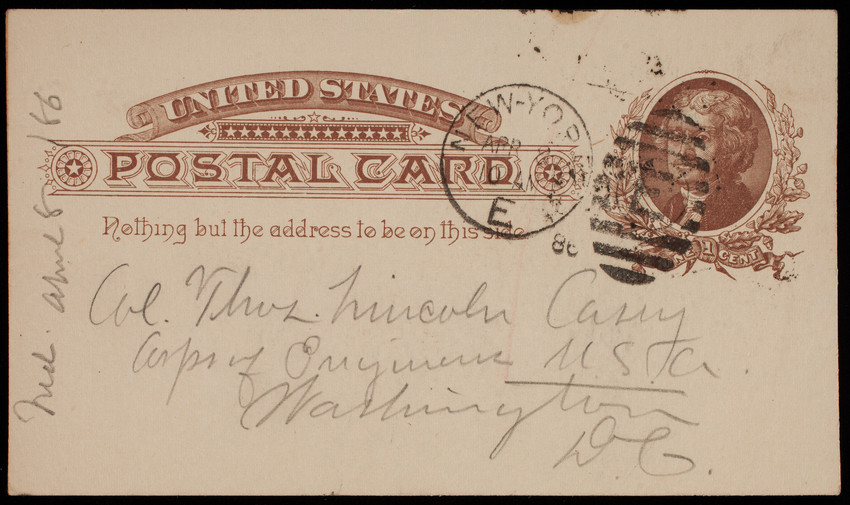 UNITED STATES
POSTAL CARD
Nothing but the address to be on this side.
NEW-YORK
APR
E
86
ONE 1 CENT
Col. Thos. Lincoln Casey
Corps of Engineers U.S.A.
Washington
D.C.
April 8 /86